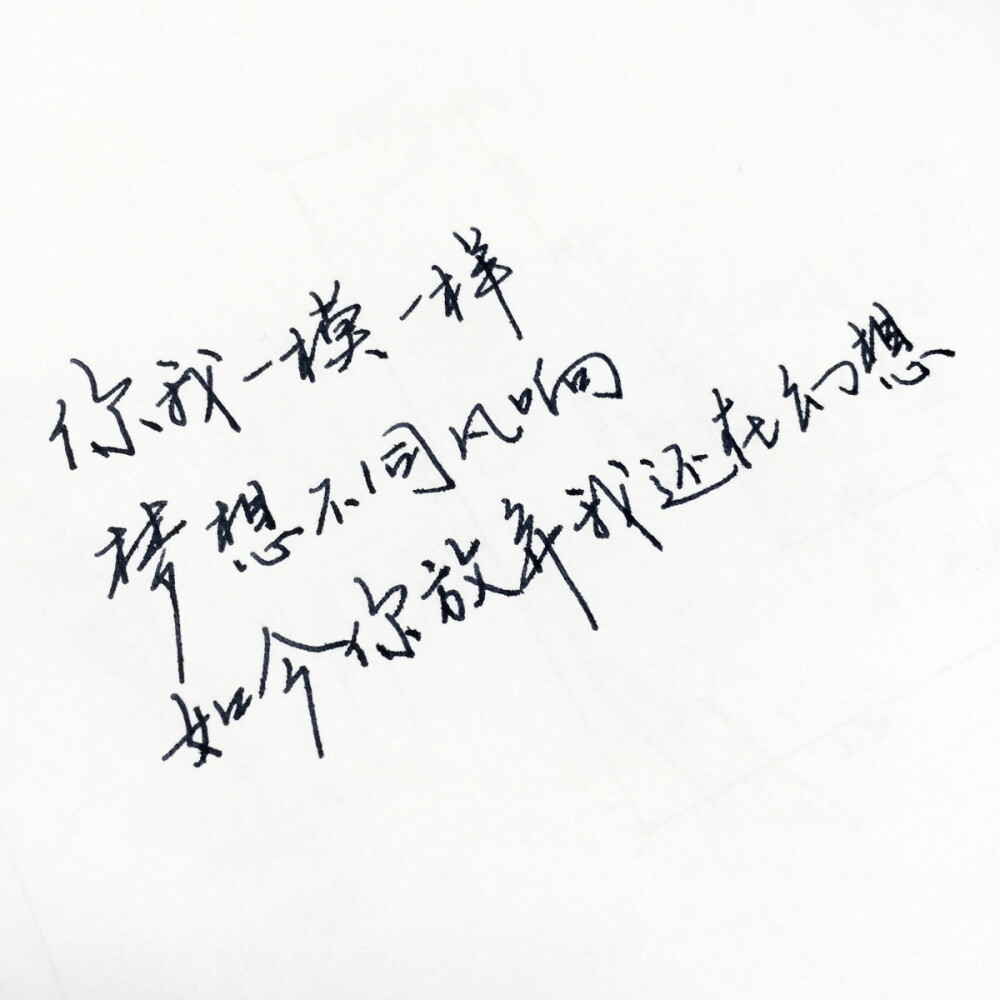 你我一模一样
梦想不同凡响
如今你放弃我还在幻想